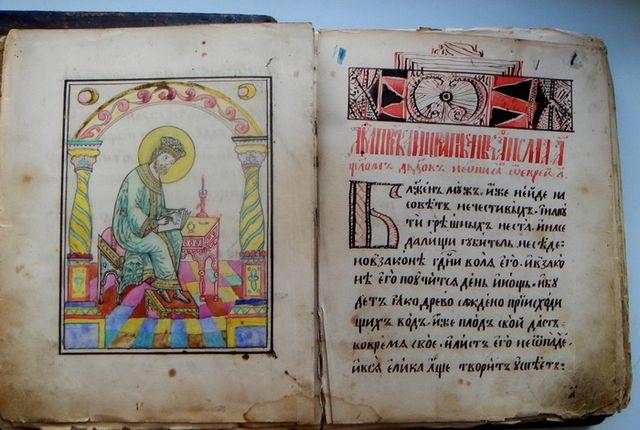 Блаженъ мужъ, иже нейде на
совѣтъ нечестивыхъ. инапу
ти грѣшныхъ неста. инасе
далищи губитель. несѣде
новзаконѣ гдни волѧ его. ивзако
нѣ его поучитсѧ день инощь. ибу
детъ ꙗко древо саждено приисходи
щихъ водъ. иже плодъ свой дастъ
вовремѧ свое. илистъ его неѿпаде.
ивсѧ елика аще творитъ успѣетъ.